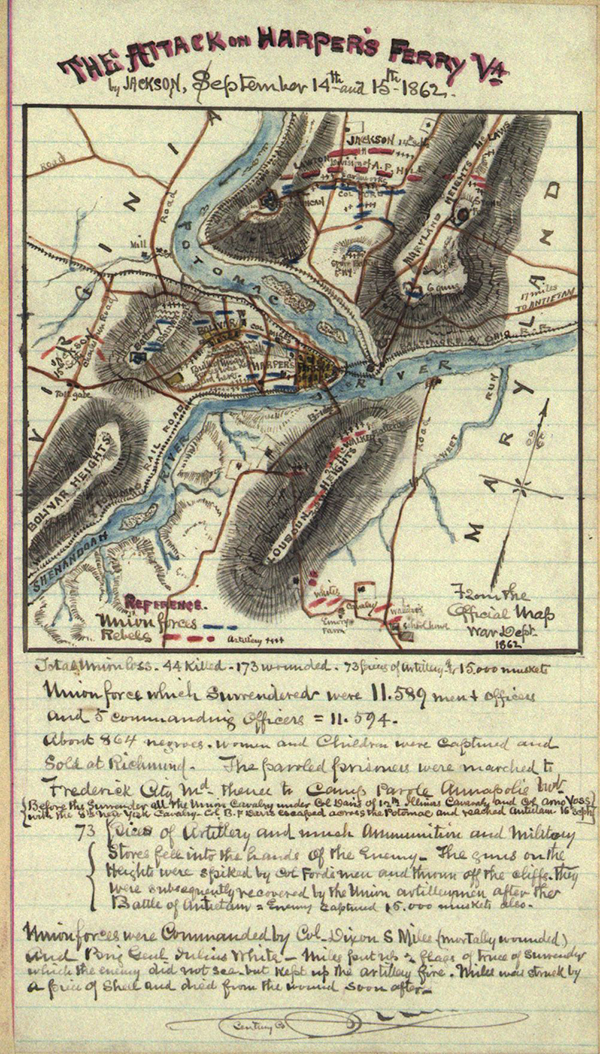 THE ATTACK ON HARPER'S FERRY VA
by JACKSON, September 14th and 15th 1862.
Road
Road
Mill
VIRGINIA
POTOMAC
JACKSON
LAWTON
A.P. HILL
MARYLAND HEIGHTS
McLAWS
6 Guns
17 miles
TO ANTIETAM
BALTIMORE & OHIO R.R.
RIVER
MARYLAND
BOLIVAR
HARPERS
Tollgate
BOLIVAR HEIGHTS
RAIL ROAD
SHENANDOAH
RIVER
LOUDOUN HEIGHTS
Road
RUN
REFERENCE.
Union forces
Rebels
Artillery
Cavalry
Farm
From the
Official Map
War Dept.
1862
Total Union loss - 44 killed - 173 wounded - 73 pieces of Artillery & 15,000 muskets
Union force which surrendered were 11.589 men & officers
and 5 commanding officers = 11.594 -
About 864 negroes, women and Children were captured and
Sold at Richmond - The paroled prisoners were marched to
Frederick City Md. thence to Camp Parole Annapolis Md.
Before the Surrender all the Union Cavalry under Col Davis of 12th Illinois Cavalry and Col Arno Voss
with the 8th New York Cavalry - Col B.F. Davis escaped across the Potomac and reached Antietam 16 Sept
73 pieces of Artillery and much Ammunition and Military
Stores fell into the hands of the Enemy - The guns on the
Heights were spiked by Col Fords men and thrown off the cliffs. They
were subsequently recovered by the Union artillerymen after the
Battle of Antietam = Enemy captured 15.000 muskets also -
Union forces were Commanded by Col - Dixon S Miles (mortally wounded)
and Brig Genl Julius White - Miles put up a flag of truce of surrender
which the enemy did not see but kept up the artillery fire. Miles was struck by
a piece of Shell and died from the wound soon after -
Century Co